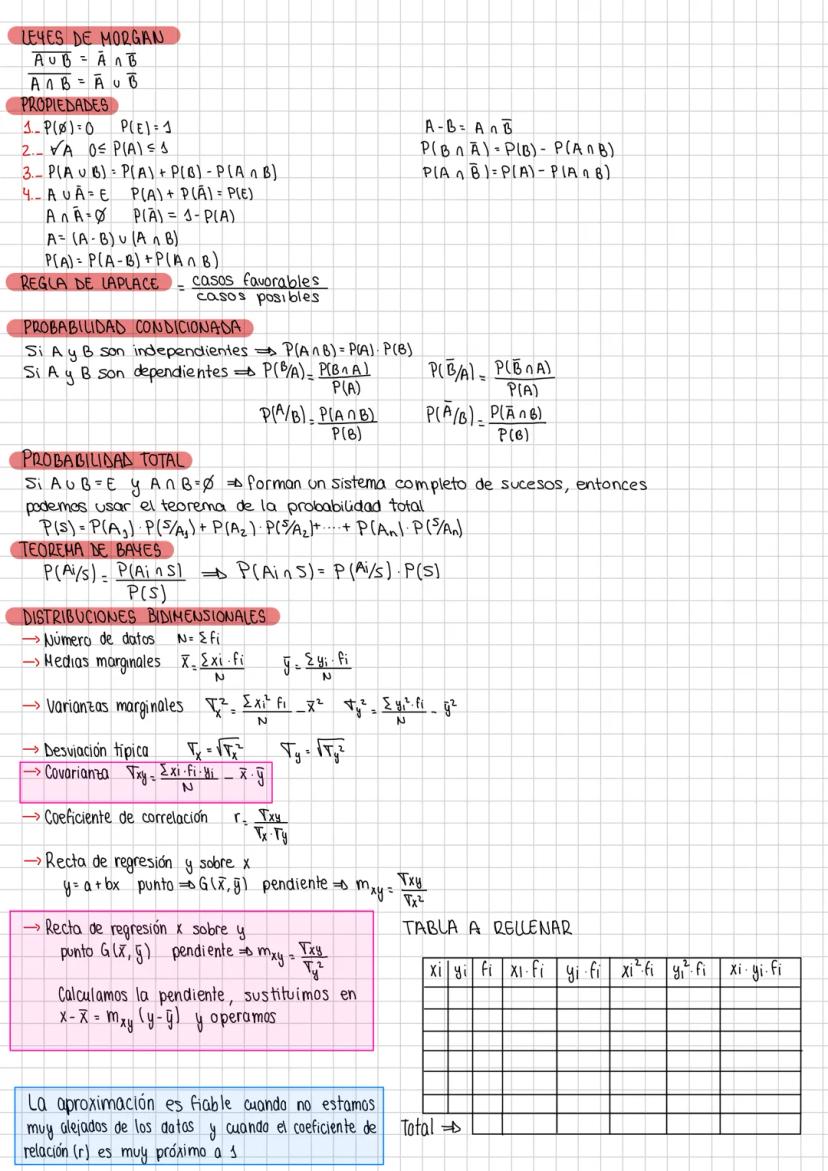 LEYES DE MORGAN
A̅ ̅∪̅ ̅B̅ = Ā ∩ B̅
A̅ ̅∩̅ ̅B̅ = Ā ∪ B̅
PROPIEDADES
1.- P(Ø)=0 P(E)=1
2.- ∀A 0≤ P(A) ≤ 1
3.- P(A ∪ B) = P(A) + P(B) - P(A ∩ B)
4.- A ∪ Ā = E P(A) + P(Ā) = P(E)
A ∩ Ā = Ø P(Ā) = 1 - P(A)
A = (A - B) ∪ (A ∩ B)
P(A) = P(A - B) + P(A ∩ B)
A - B = A ∩ B̅
P(B ∩ Ā) = P(B) - P(A ∩ B)
P(A ∩ B̅) = P(A) - P(A ∩ B)
REGLA DE LAPLACE = casos favorables / casos posibles
PROBABILIDAD CONDICIONADA
Si A y B son independientes ⇒ P(A ∩ B) = P(A) · P(B)
Si A y B son dependientes ⇒ P(B/A) = P(B ∩ A) / P(A) P(B̅/A) = P(B̅ ∩ A) / P(A)
P(A/B) = P(A ∩ B) / P(B) P(Ā/B) = P(Ā ∩ B) / P(B)
PROBABILIDAD TOTAL
Si A ∪ B = E y A ∩ B = Ø ⇒ forman un sistema completo de sucesos, entonces
podemos usar el teorema de la probabilidad total
P(S) = P(A₁) · P(S/A₁) + P(A₂) · P(S/A₂) + ····· + P(Aₙ) · P(S/Aₙ)
TEOREMA DE BAYES
P(Ai/S) = P(Ai ∩ S) / P(S) ⇒ P(Ai ∩ S) = P(Ai/S) · P(S)
DISTRIBUCIONES BIDIMENSIONALES
→ Número de datos N = Σfi
→ Medias marginales x̅ = Σxi · fi / N y̅ = Σyi · fi / N
→ Varianzas marginales σx² = Σxi² fi / N - x̅² σy² = Σyi² · fi / N - y̅²
→ Desviación típica σx = √σx² σy = √σy²
→ Covarianza σxy = Σxi · fi · yi / N - x̅ · y̅
→ Coeficiente de correlación r = σxy / σx · σy
→ Recta de regresión y sobre x
y = a + bx punto ⇒ G(x̅, y̅) pendiente ⇒ mxy = σxy / σx²
→ Recta de regresión x sobre y
punto G(x̅, y̅) pendiente ⇒ mxy = σxy / σy²
Calculamos la pendiente, sustituimos en
x - x̅ = mxy (y - y̅) y operamos
TABLA A RELLENAR
xi yi fi xi · fi yi · fi xi² · fi yi² · fi xi · yi · fi
Total ⇒
La aproximación es fiable cuando no estamos
muy alejados de los datos y cuando el coeficiente de
relación (r) es muy próximo a 1